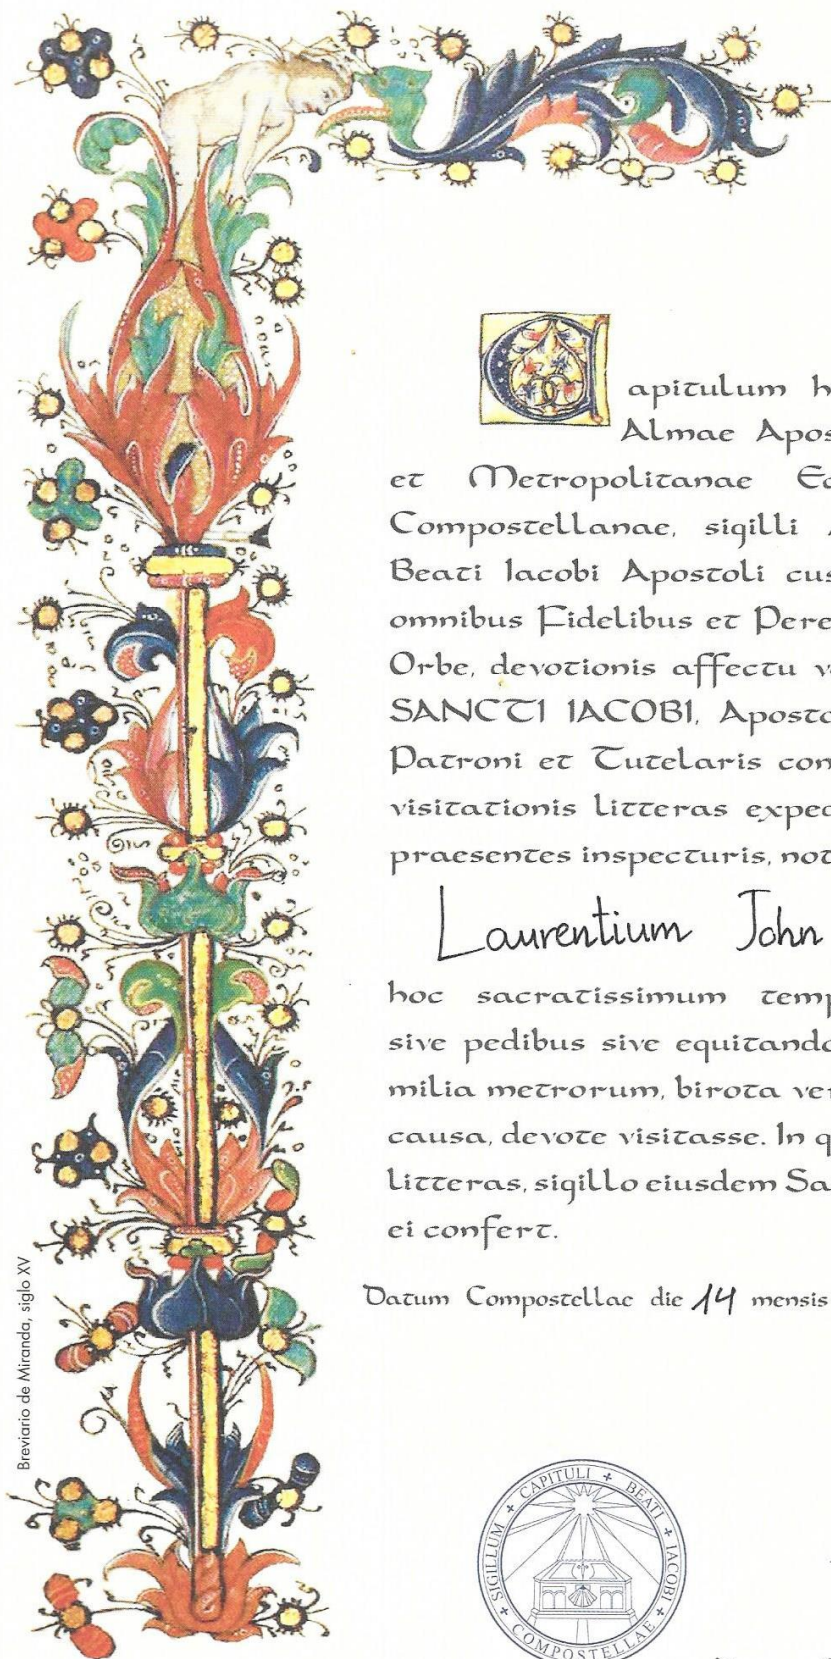 Capitulum h
Almae Apos
et Metropolitanae Ec
Compostellanae, sigilli A
Beati Iacobi Apostoli cus
omnibus Fidelibus et Pere
Orbe, devotionis affectu v
SANCTI IACOBI, Aposto
Patroni et Tutelaris con
visitationis litteras exped
praesentes inspecturis, not
Laurentium John
hoc sacratissimum temp
sive pedibus sive equitando
milia metrorum, birota ver
causa, devote visitasse. In q
litteras, sigillo eiusdem Sa
ei confert.
Datum Compostellae die 14 mensis
Breviario de Miranda, siglo XV
SIGILLUM + CAPITULI + BEATI + IACOBI + COMPOSTELLAE +